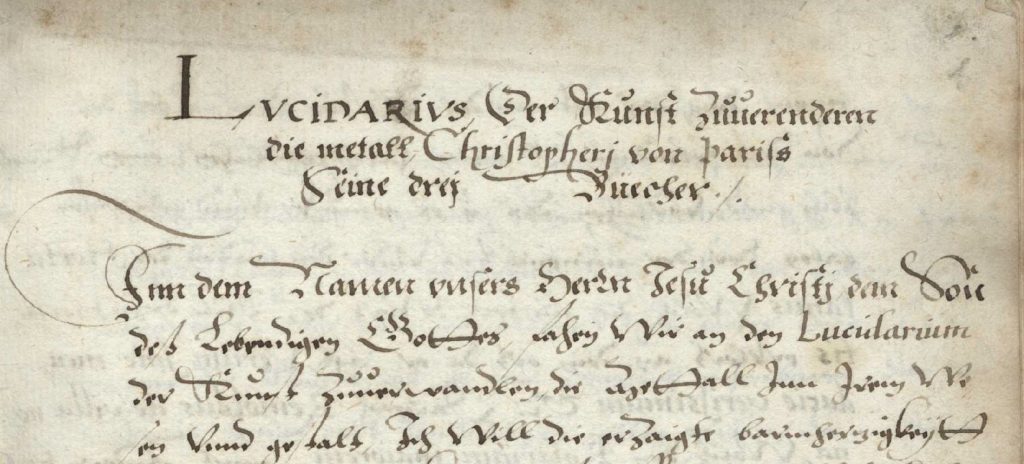 LVCIDARIVS, Der Kunst Zuuerenderen
die metall, Christopherj von pariss
Seine drej Büecher ./.
Inn dem Namen vnsers Herrn Jesu Christj den Son
deß Lebendigen Gottes, fahen Wir an den Lucidarium
der Kunst Zuuerwandlen, die Metall Inn Irem We
sen Vnnd gestalt, Ich Will die erzaigte barmhertzigkeytt